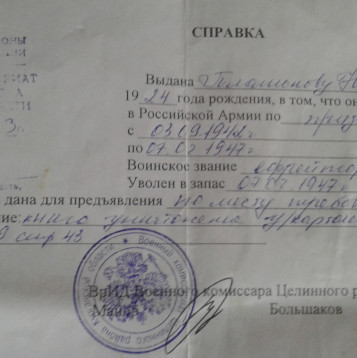 СПРАВКА
Выдана
19 24 года рождения, в том, что он
в Российской Армии по приз
с 03.09.1942г
по 07.02.1947г
Воинское звание ефрейтор
Уволен в запас 07.02.1947г
дана для предъявления по месту требов
ние: книга уничтожения
9 стр 43
ВрИД Военного комиссара Целинного р
Майор Большаков